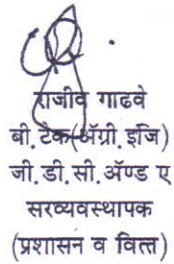 राजीव गाढवे
बी.टेक(ॲग्री.इंजि)
जी.डी.सी.ॲण्ड ए
सरव्यवस्थापक
(प्रशासन व वित्त)